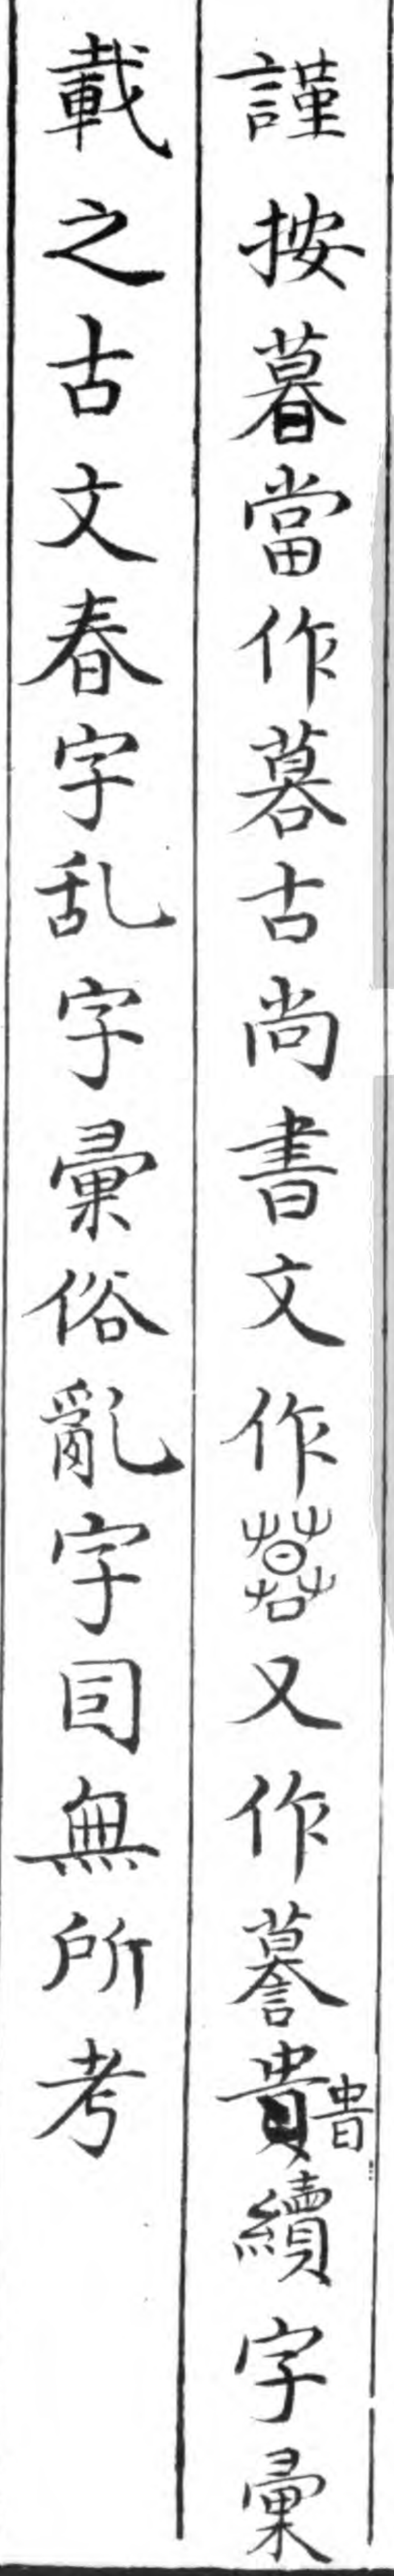 謹按暮當作古尚書文作又作謩貴續字彙
載之古文春字乱字彙俗亂字無所考